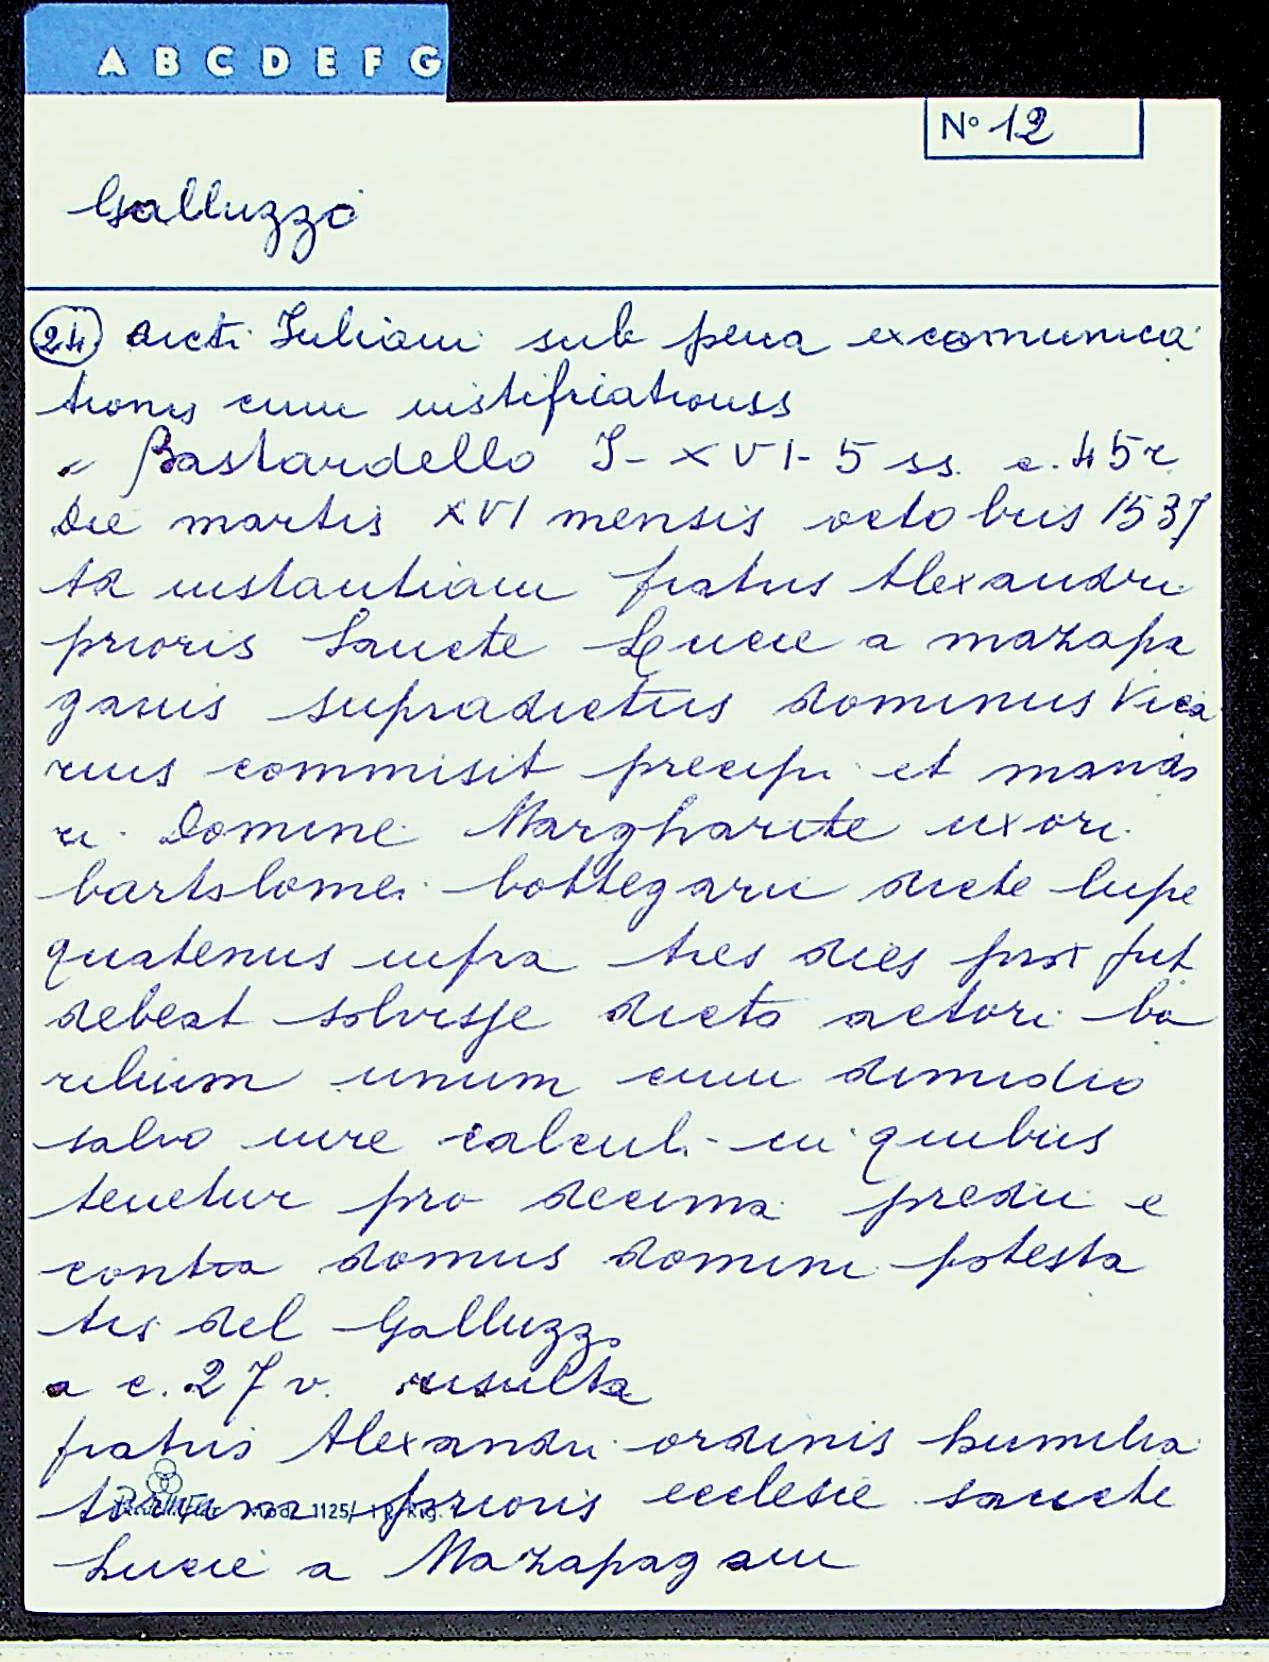 A B C D E F G
N° 12
Galluzzo
24 dicti Iuliani sub pena excomunica
tionis cum iustifriationss
" Bastardello I- XVI- 5 ss. c. 45r
Die martis XVI mensis octobris 1537
Ad instantiam fratris Alexandri
prioris Sancte Lucie a mazapa
ganis supradictus dominus Vica
rius commisit precepi et manda
ri Domine Margharite uxori
bartolomei bottegarii dicte lupe
quatenus infra tres dies prox fut
debeat solvisse dicto actori ba
rilium unum cum dimidio
salvo iure calculi in quibus
tenetur pro decima predii e
contra domus domini potesta
tis del Galluzzo
a c. 27 v. risulta
fratris Alexandri ordinis humilia
torum prioris ecclesie sancte
Lucie a Mazapagani